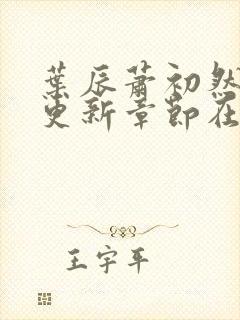 葉辰蕭初然
更新章節在
王宇平